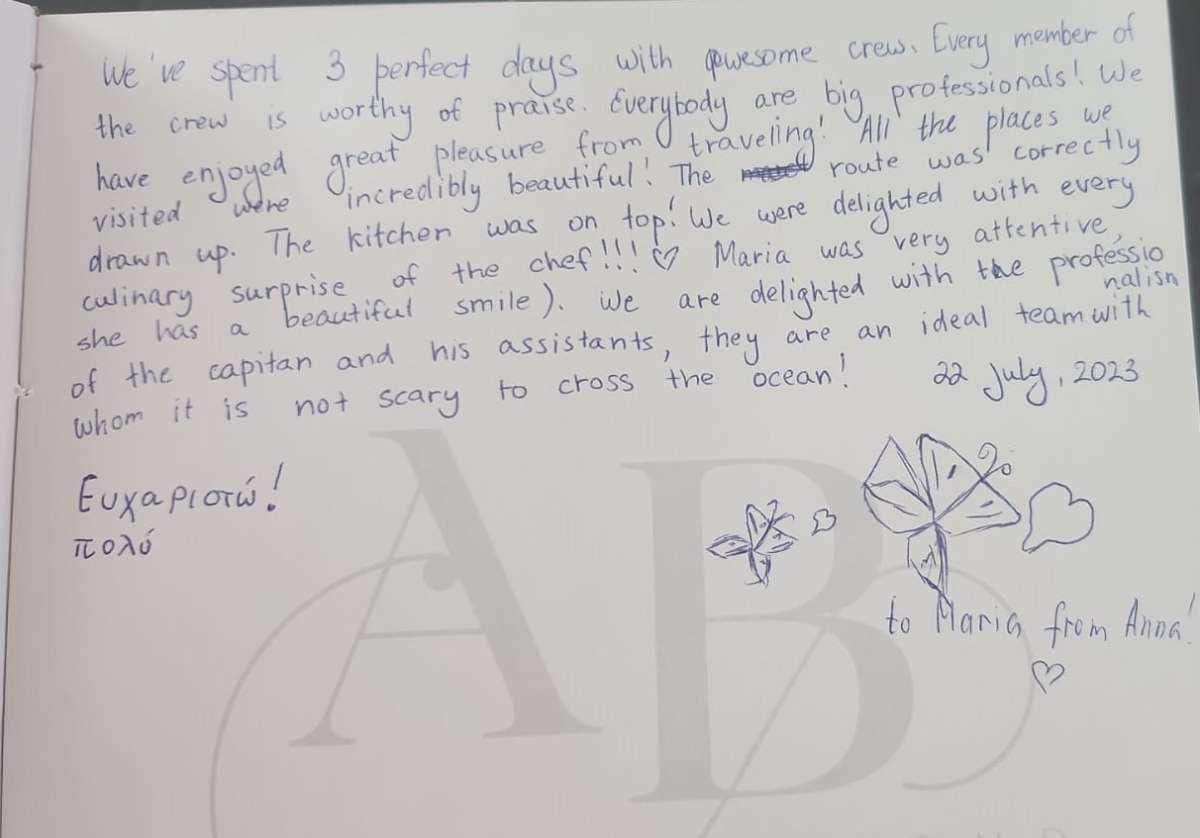 We've spent 3 perfect days with awesome crew. Every member of
the crew is worthy of praise. Everybody are big professionals! We
have enjoyed great pleasure from traveling! All the places we
visited were incredibly beautiful! The route was correctly
drawn up. The kitchen was on top! We were delighted with every
culinary surprise of the chef!!! ♡ Maria was very attentive,
she has a beautiful smile). We are delighted with the professio
nalism
of the capitan and his assistants, they are an ideal team with
whom it is not scary to cross the ocean! 22 July, 2023
Ευχαριστώ!
πολύ
AB
to Maria from Anna!
♡